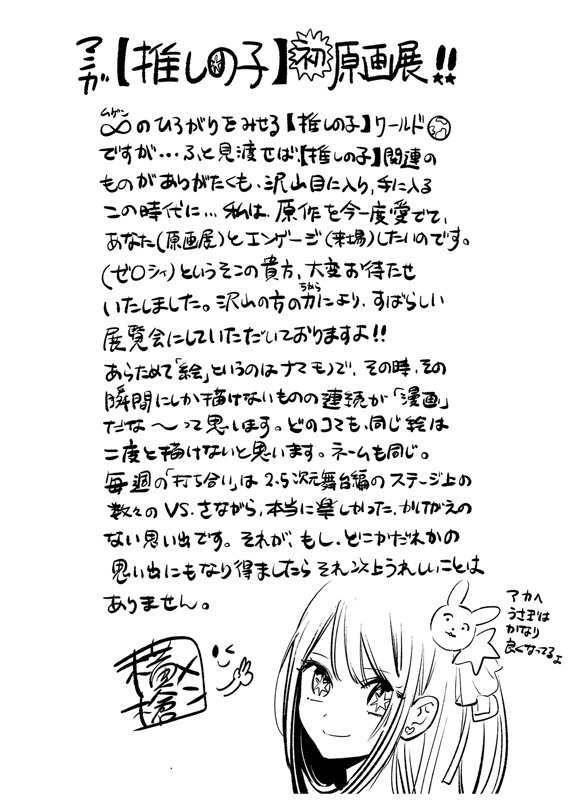 マンガ【推しの子】初原画展!!
ムゲン
∞のひろがりをみせる【推しの子】ワールド
ですが…ふと見渡せば、【推しの子】関連の
ものがありがたくも、沢山目に入り、手に入る
この時代に…私は、原作を今一度愛でて、
あなた(原画展)とエンゲージ(来場)したいのです。
(ゼロシィ)というそこの貴方、大変お待たせ
いたしました。沢山の方の力により、すばらしい
ちから
展覧会にしていただいておりますよ!!
あらためて「絵」というのはナマモノで、その時、その
瞬間にしか描けないものの連続が「漫画」
だな〜って思います。どのコマも、同じ絵は
二度と描けないと思います。ネームも同じ。
毎週の「打ち合い」は2.5次元舞台編のステージ上の
数々のVS.さながら、本当に楽しかった、かけがえの
ない思い出です。それが、もし、どこかだれかの
思い出にもなり得ましたらそれ以上うれしいことは
ありません。
アカヘ
うさぎは
かなり
良くなってるよ
横槍
メンゴ